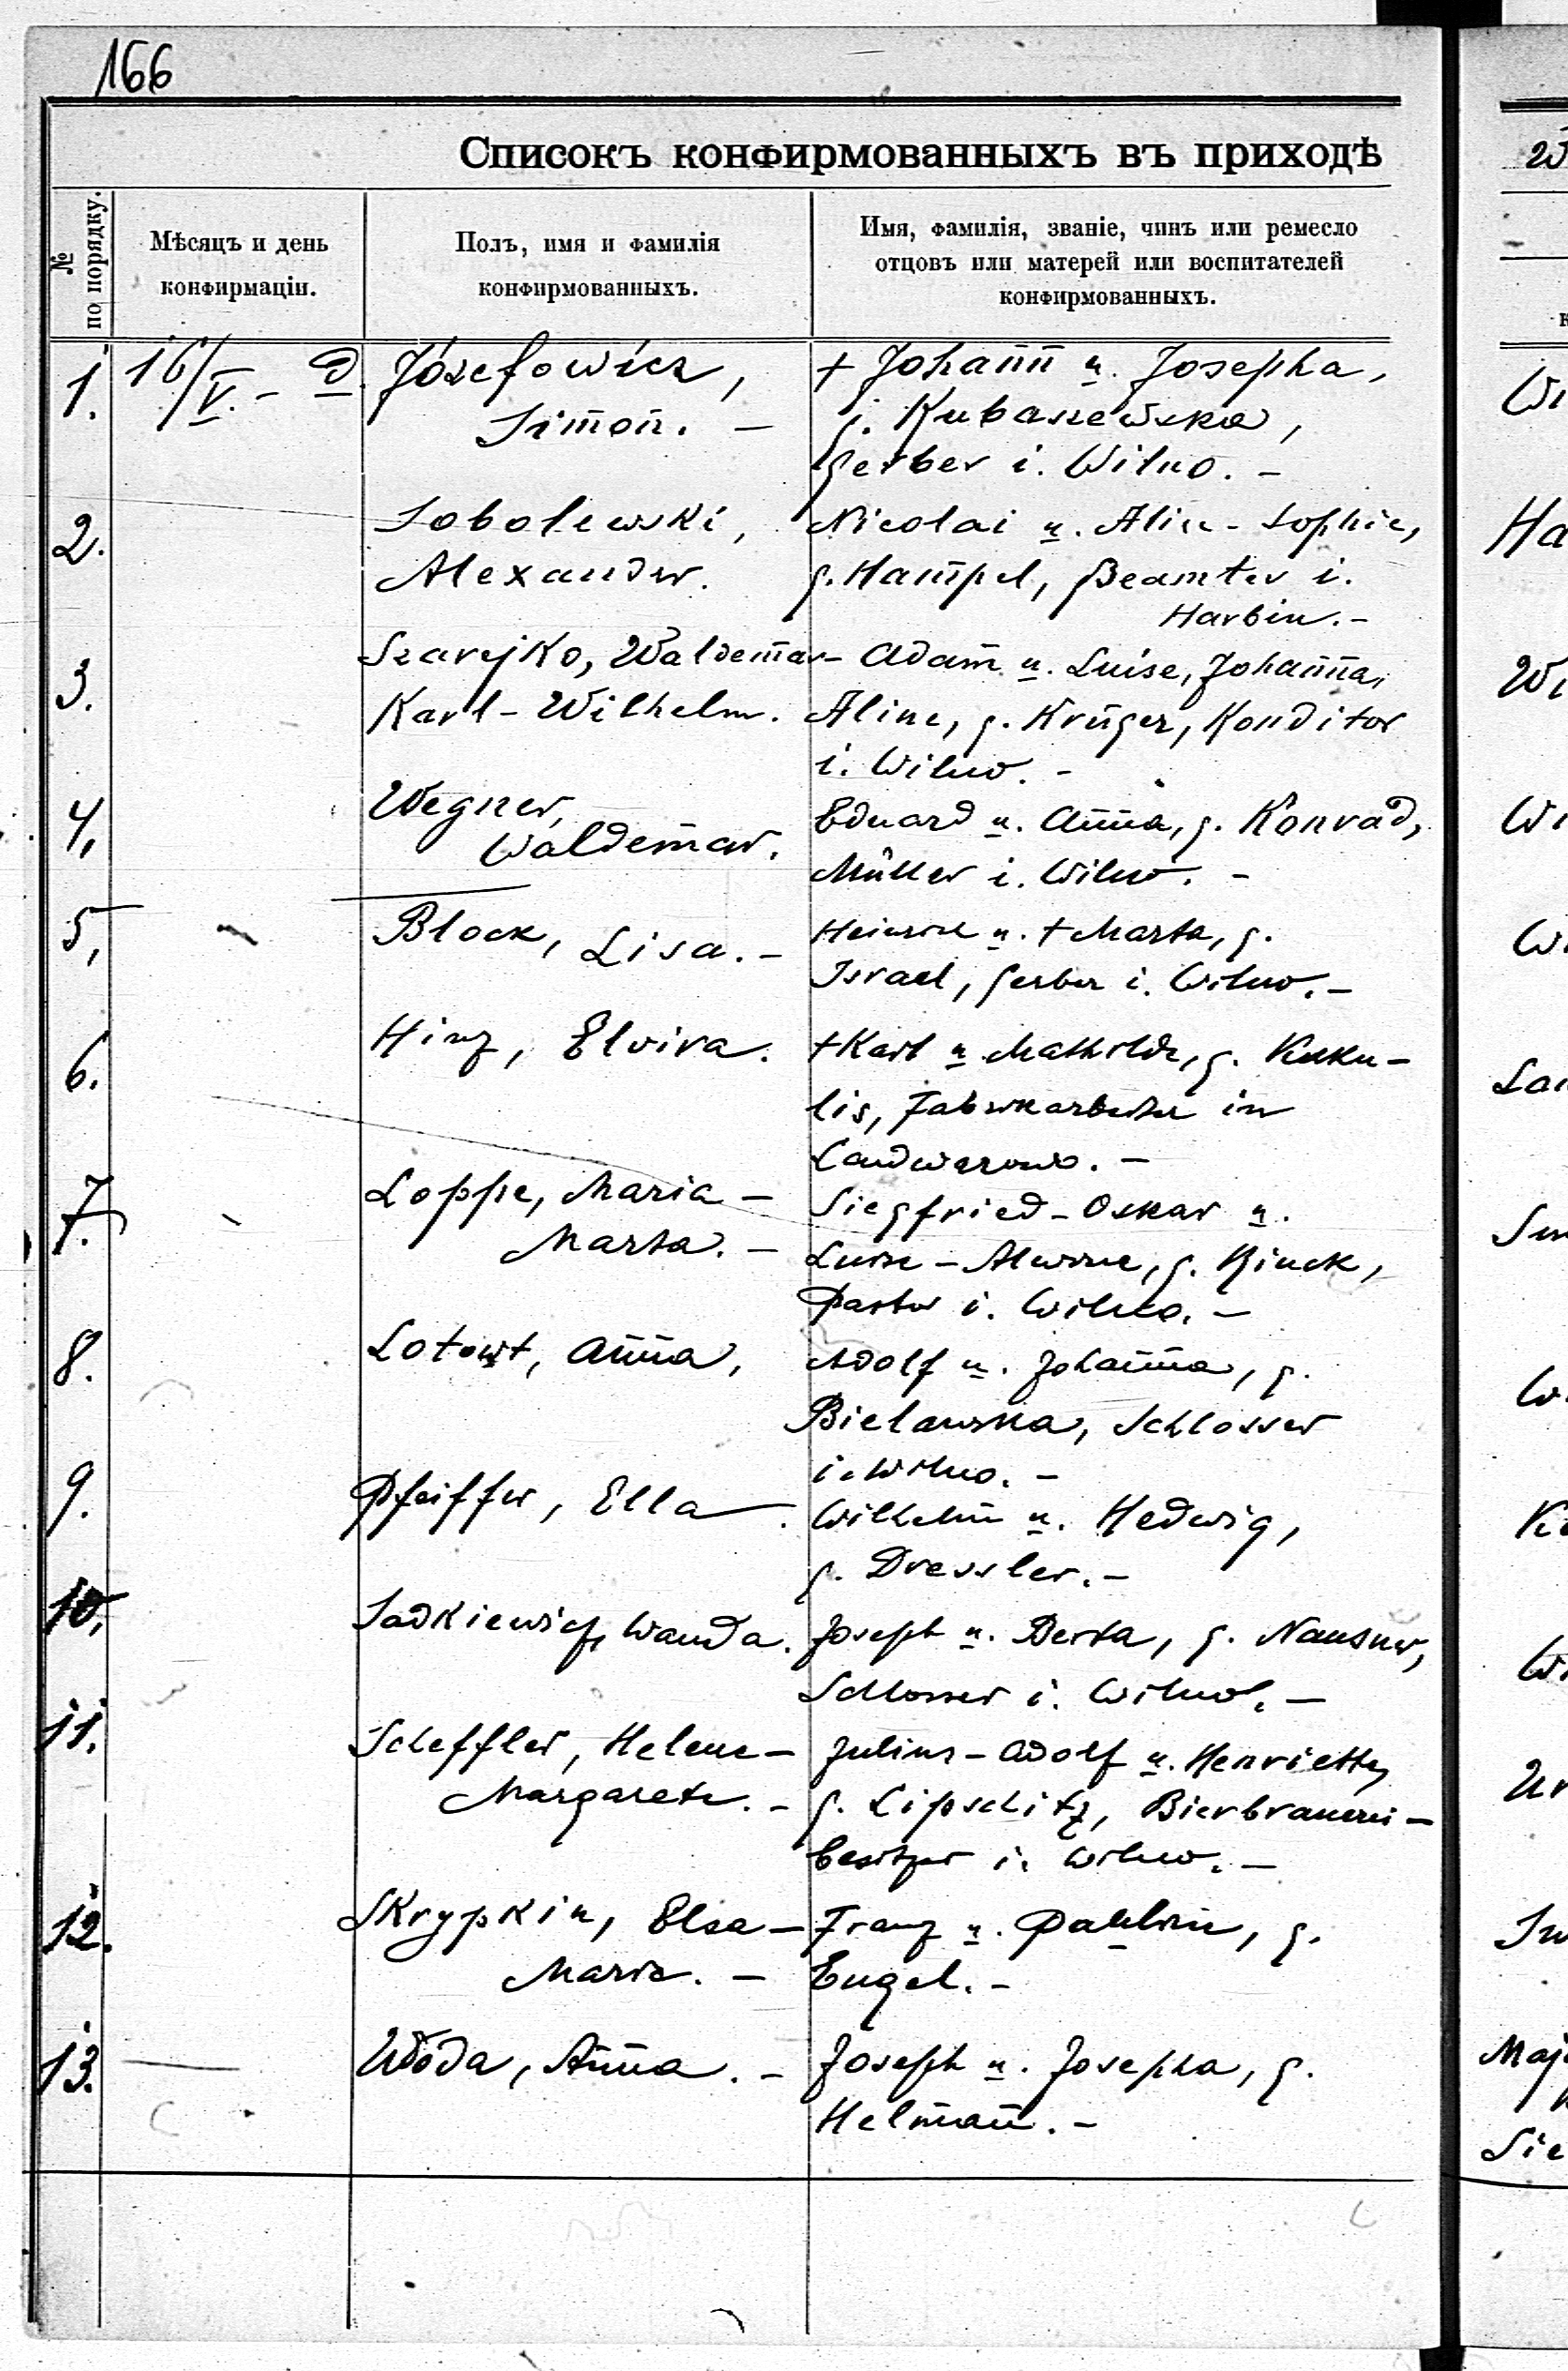 166
Списокъ конфирмованныхъ въ приходѣ
№ по порядку.
Мѣсяцъ и день
конфирмаціи.
Полъ, имя и фамилія
конфирмованныхъ.
Имя, фамилія, званіе, чинъ или ремесло
отцовъ или матерей или воспитателей
конфирмованныхъ.
1. 16/V. - Józefowicz, + Johan̄n̄ u. Josepha,
Simon. - g. Kubaszewska,
Gerber i. Wilno. -
2. Sobolewski, Nicolai u. Aline-Sophie,
Alexander. g. Hampel, Beamter i.
Harbin. -
3. Szarejko, Waldemar- Adam u. Luise, Johan̄n̄a,
Karl-Wilhelm. Aline, g. Krüger, Konditor
i. Wilno. -
4. Wegner, Eduard u. An̄n̄a, g. Konrad,
Waldemar. Müller i. Wilno. -
5. Block, Lisa. - Heinrich u. + Marta, g.
Israel, Gerber i. Wilno. -
6. Hinz, Elvira. + Karl u. Mathilde, g. Kuku-
lis, Fabrikarbeiter in
Landwarowo. -
7. Loppe, Maria- Siegfried-Oskar u.
Marta. - Luise- g. Rinck,
Pastor i. Wilno. -
8. Lotowt, An̄n̄a, Adolf u. Johan̄n̄a, g.
Bielawska, Schlosser
i. Wilno. -
9. Pfeiffer, Ella. Wilhelm u. Hedwig,
g. Dressler. -
10. Sadkiewicz, Wanda. Joseph u. Berta, g.
Schlosser i. Wilno. -
11. Scheffler, Helene- Julius-Adolf u. Henriette,
Margarete. - g. Lipschitz, Bierbrauerei-
besitzer i. Wilno. -
12. Skrypkin, Elsa- Franz u. Pauline, g.
Marie. - Engel. -
13. Woda, An̄n̄a. - Joseph u. Josepha, g.
Helman̄n̄. -